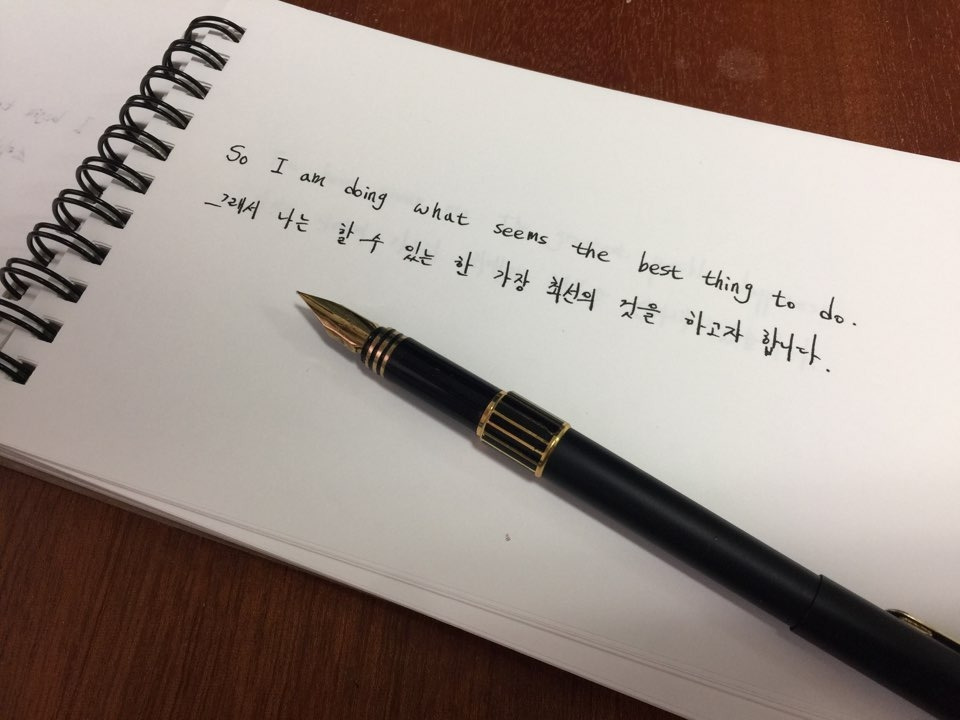 So I am doing what seems the best thing to do.
그래서 나는 할 수 있는 한 가장 최선의 것을 하고자 합니다.